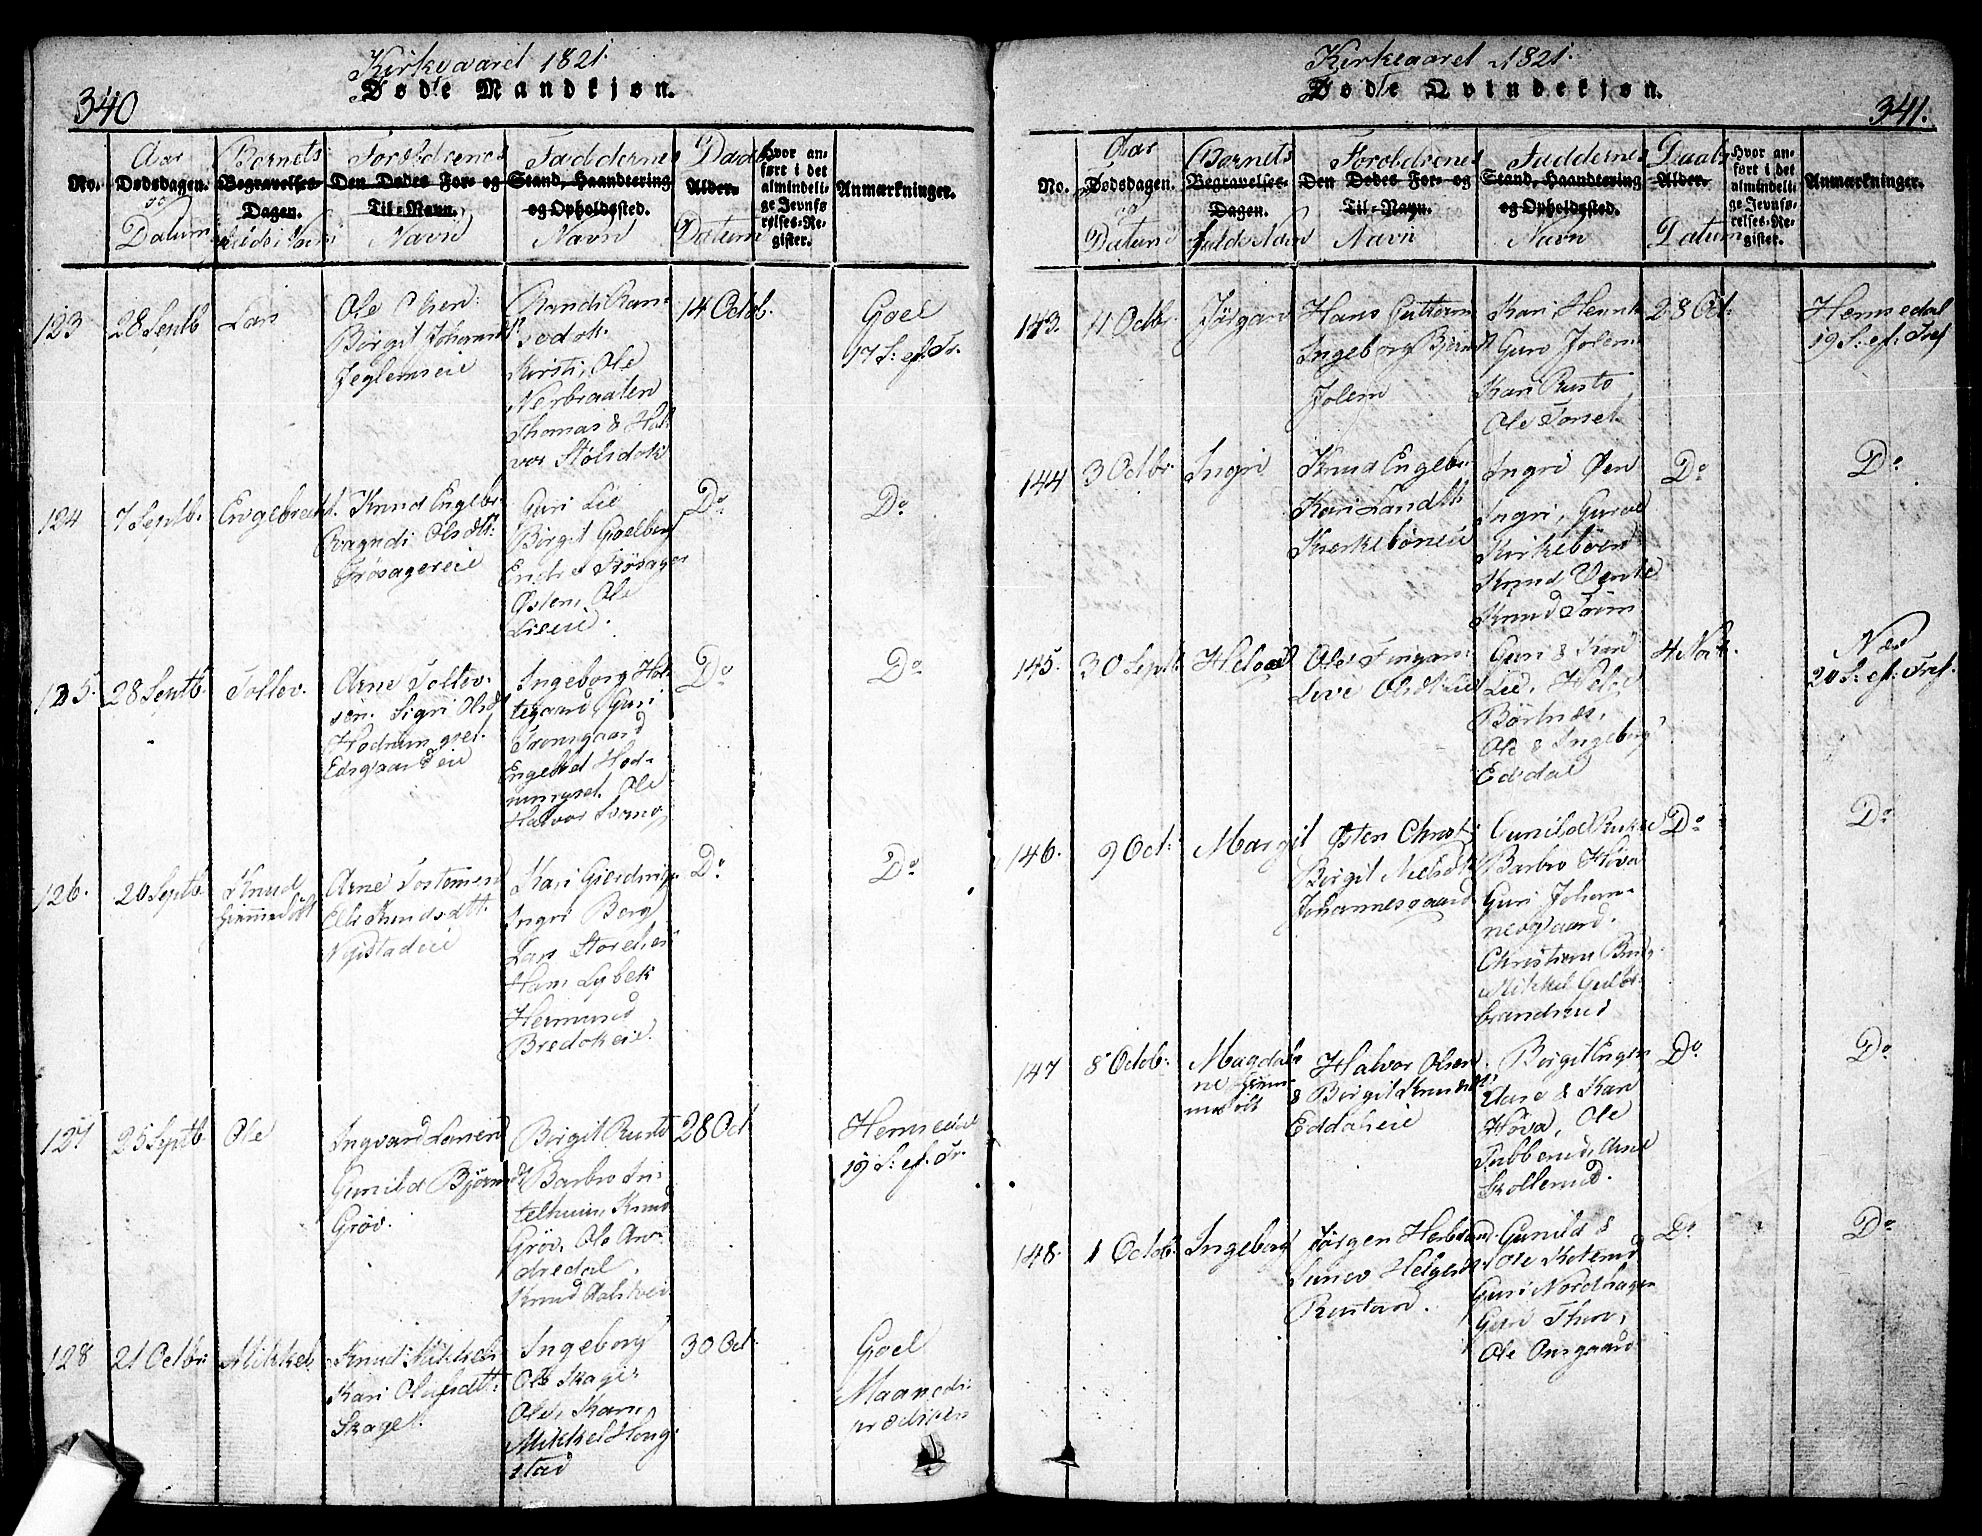 Kirkeaaret 1821.
340
Døde Mandkjøn.
No.
Aar
Dødsdagen.
og
Datum
Barnets
Begravelses-
Dagen.
fulde Navn
Forældrenes
Den Dødes For- og
Til-Navn.
Navn
Faddernes
Stand, Haandtering
og Opholdssted.
Navn
Daabs
Alder.
Datum
Hvor an-
ført i det
almindeli-
ge Jevnfø-
relses-Re-
gister.
Anmærkninger.
123
28 Septb
Lars
Ole Olsen
Birgit Johannsd
Jeglemseie
Kirsti, Ole
Nerbraaten
Thomas & Hal-
vor Stølsdok
14 Octb.
Goel
17 S: ef. Tr.
124
7 Septb.
Engebreth
Knud Engebr
Ragndi Olsdtt:
Trøsagereie
Guri Lie
Birgit Goelberg
Østen, Ole
Lieeie.
Do
Do
125.
28 Septb.
Tollev.
Arne Tollev-
sön. Sigri Olsd
Eidsgaardeie
Ingeborg Hol-
tegaard, Guri
Tromsgaard
Ole
Halvor
Do
Do
126.
20 Septb.
Knud
hjemmedöbt
Arne Torstensen
Eli Knudsdtt.
Nystadeie
Kari Gjerdnip
Ingri Berg
Lars Storelien
Hans Lybek
Hermund
Bredokeie.
Do
Do
127
25 Septb
Ole
Ingvard Larsen
Gunild Bjørnsd
Grøv.
Birgit Rusto
Barbro Tri-
telhuun, Knud
Grøv, Ole An-
dredal,
Knud
28 Oct
Hemsedal
19 S: ef. Tr.
128
21 Octbr
Mikkel
Knud Mikkels
Kari Olufsdtt:
Skaget.
Ingeborg
Ole Skage
Ole, Kari,
Mikkel Haug-
stad
30 Oct.
Goel
Maaneds-
prædiken
Kirkeaaret 1821.
341.
Døde Qvindekjøn.
No.
Aar
Dødsdagen.
og
Datum
Barnets
Begravelses-
Dagen.
fulde Navn
Forældrenes
Den Dødes For- og
Til-Navn.
Navn
Faddernes
Stand, Haandtering
og Opholdssted.
Navn
Daabs
Alder.
Datum
Hvor an-
ført i det
almindeli-
ge Jevnfø-
relses-Re-
gister.
Anmærkninger.
143.
11 Octb.
Jørgand
Hans Guttorm
Ingeborg Bjørnsd
Jolem
Guro Jolem
Kari Rusto
28 Oct.
Hemsedal
19 S: ef: Tref
144
3 Octbr
Ingri
Knud Engebr
Kirkebøneie
Ingri Øen
Ingri, Guroe
Kirkebøen
Knud
Knud
Do
Do
145.
30 Sept.
Helged
Ole Fingars
Live Olsdtt Lie
Guri & Kari
Lie, Helge
Børtnæs,
Ole & Ingeborg
Eddal
4 Nov.
Næs
20 S: ef. Tref.
146.
9 Oct:
Margit
Østen Christ
Birgit Nielsdt
Johannesgaard
Gunild Rukke
Barbro Hova
Guri Johan-
nesgaard.
Christian
Mikkel Guld-
brandsrud
Do
Do
147
8 Octb.
Magdale
ne hjem-
medöbt
Halvor Olsen
& Birgit Knudsdt
Eddaleie
Birgit Engen
Aase & Kari
Hova, Ole
Tubberud, Arne
Skollerud.
Do
Do
148.
1 Octb.
Ingeborg
Jørgen Herbrand.
Helgesd
Rustan.
Gunild &
Ole
Guri Nordhagen
Guri Thon,
Ole
Do
Do